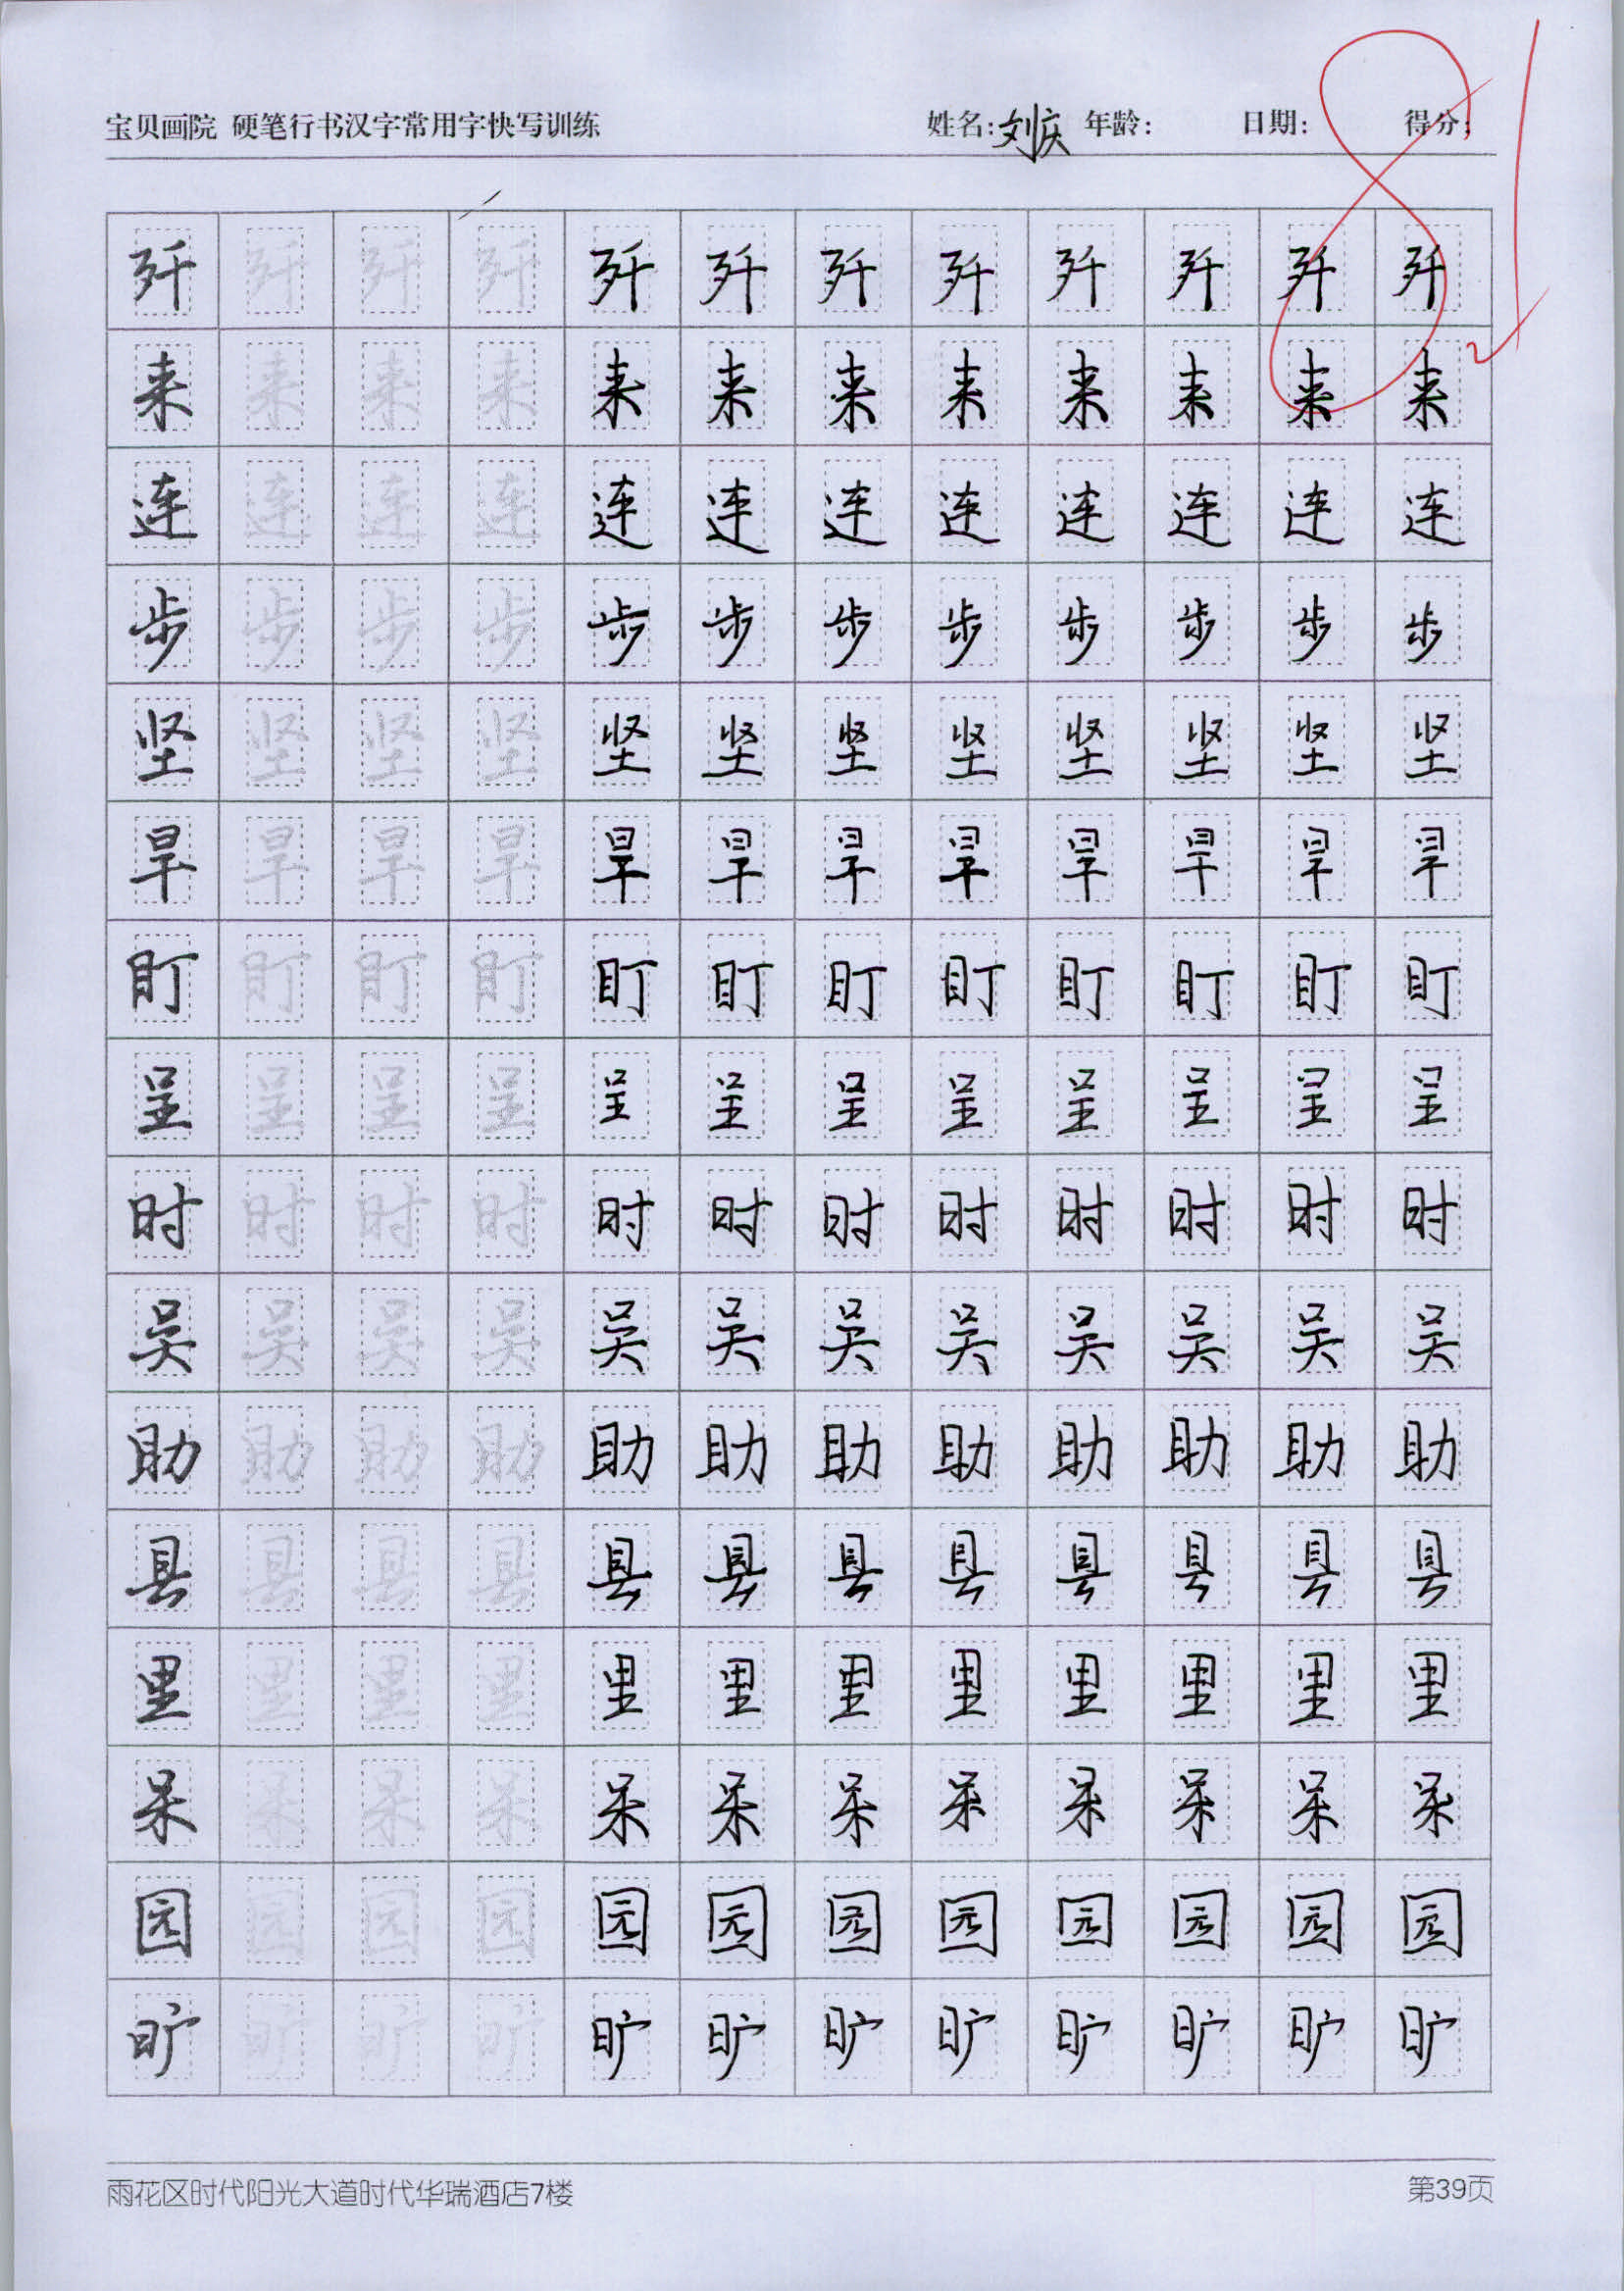 宝贝画院 硬笔行书汉字常用字快写训练 姓名:刘庆 年龄: 日期: 得分: 81
歼 歼 歼 歼 歼 歼 歼 歼 歼 歼 歼 歼
来 来 来 来 来 来 来 来 来 来 来 来
连 连 连 连 连 连 连 连 连 连 连 连
步 步 步 步 步 步 步 步 步 步 步 步
坚 坚 坚 坚 坚 坚 坚 坚 坚 坚 坚 坚
旱 旱 旱 旱 旱 旱 旱 旱 旱 旱 旱 旱
盯 盯 盯 盯 盯 盯 盯 盯 盯 盯 盯 盯
呈 呈 呈 呈 呈 呈 呈 呈 呈 呈 呈 呈
时 时 时 时 时 时 时 时 时 时 时 时
吴 吴 吴 吴 吴 吴 吴 吴 吴 吴 吴 吴
助 助 助 助 助 助 助 助 助 助 助 助
县 县 县 县 县 县 县 县 县 县 县 县
里 里 里 里 里 里 里 里 里 里 里 里
呆 呆 呆 呆 呆 呆 呆 呆 呆 呆 呆 呆
园 园 园 园 园 园 园 园 园 园 园 园
旷 旷 旷 旷 旷 旷 旷 旷 旷 旷 旷 旷
雨花区时代阳光大道时代华瑞酒店7楼 第39页